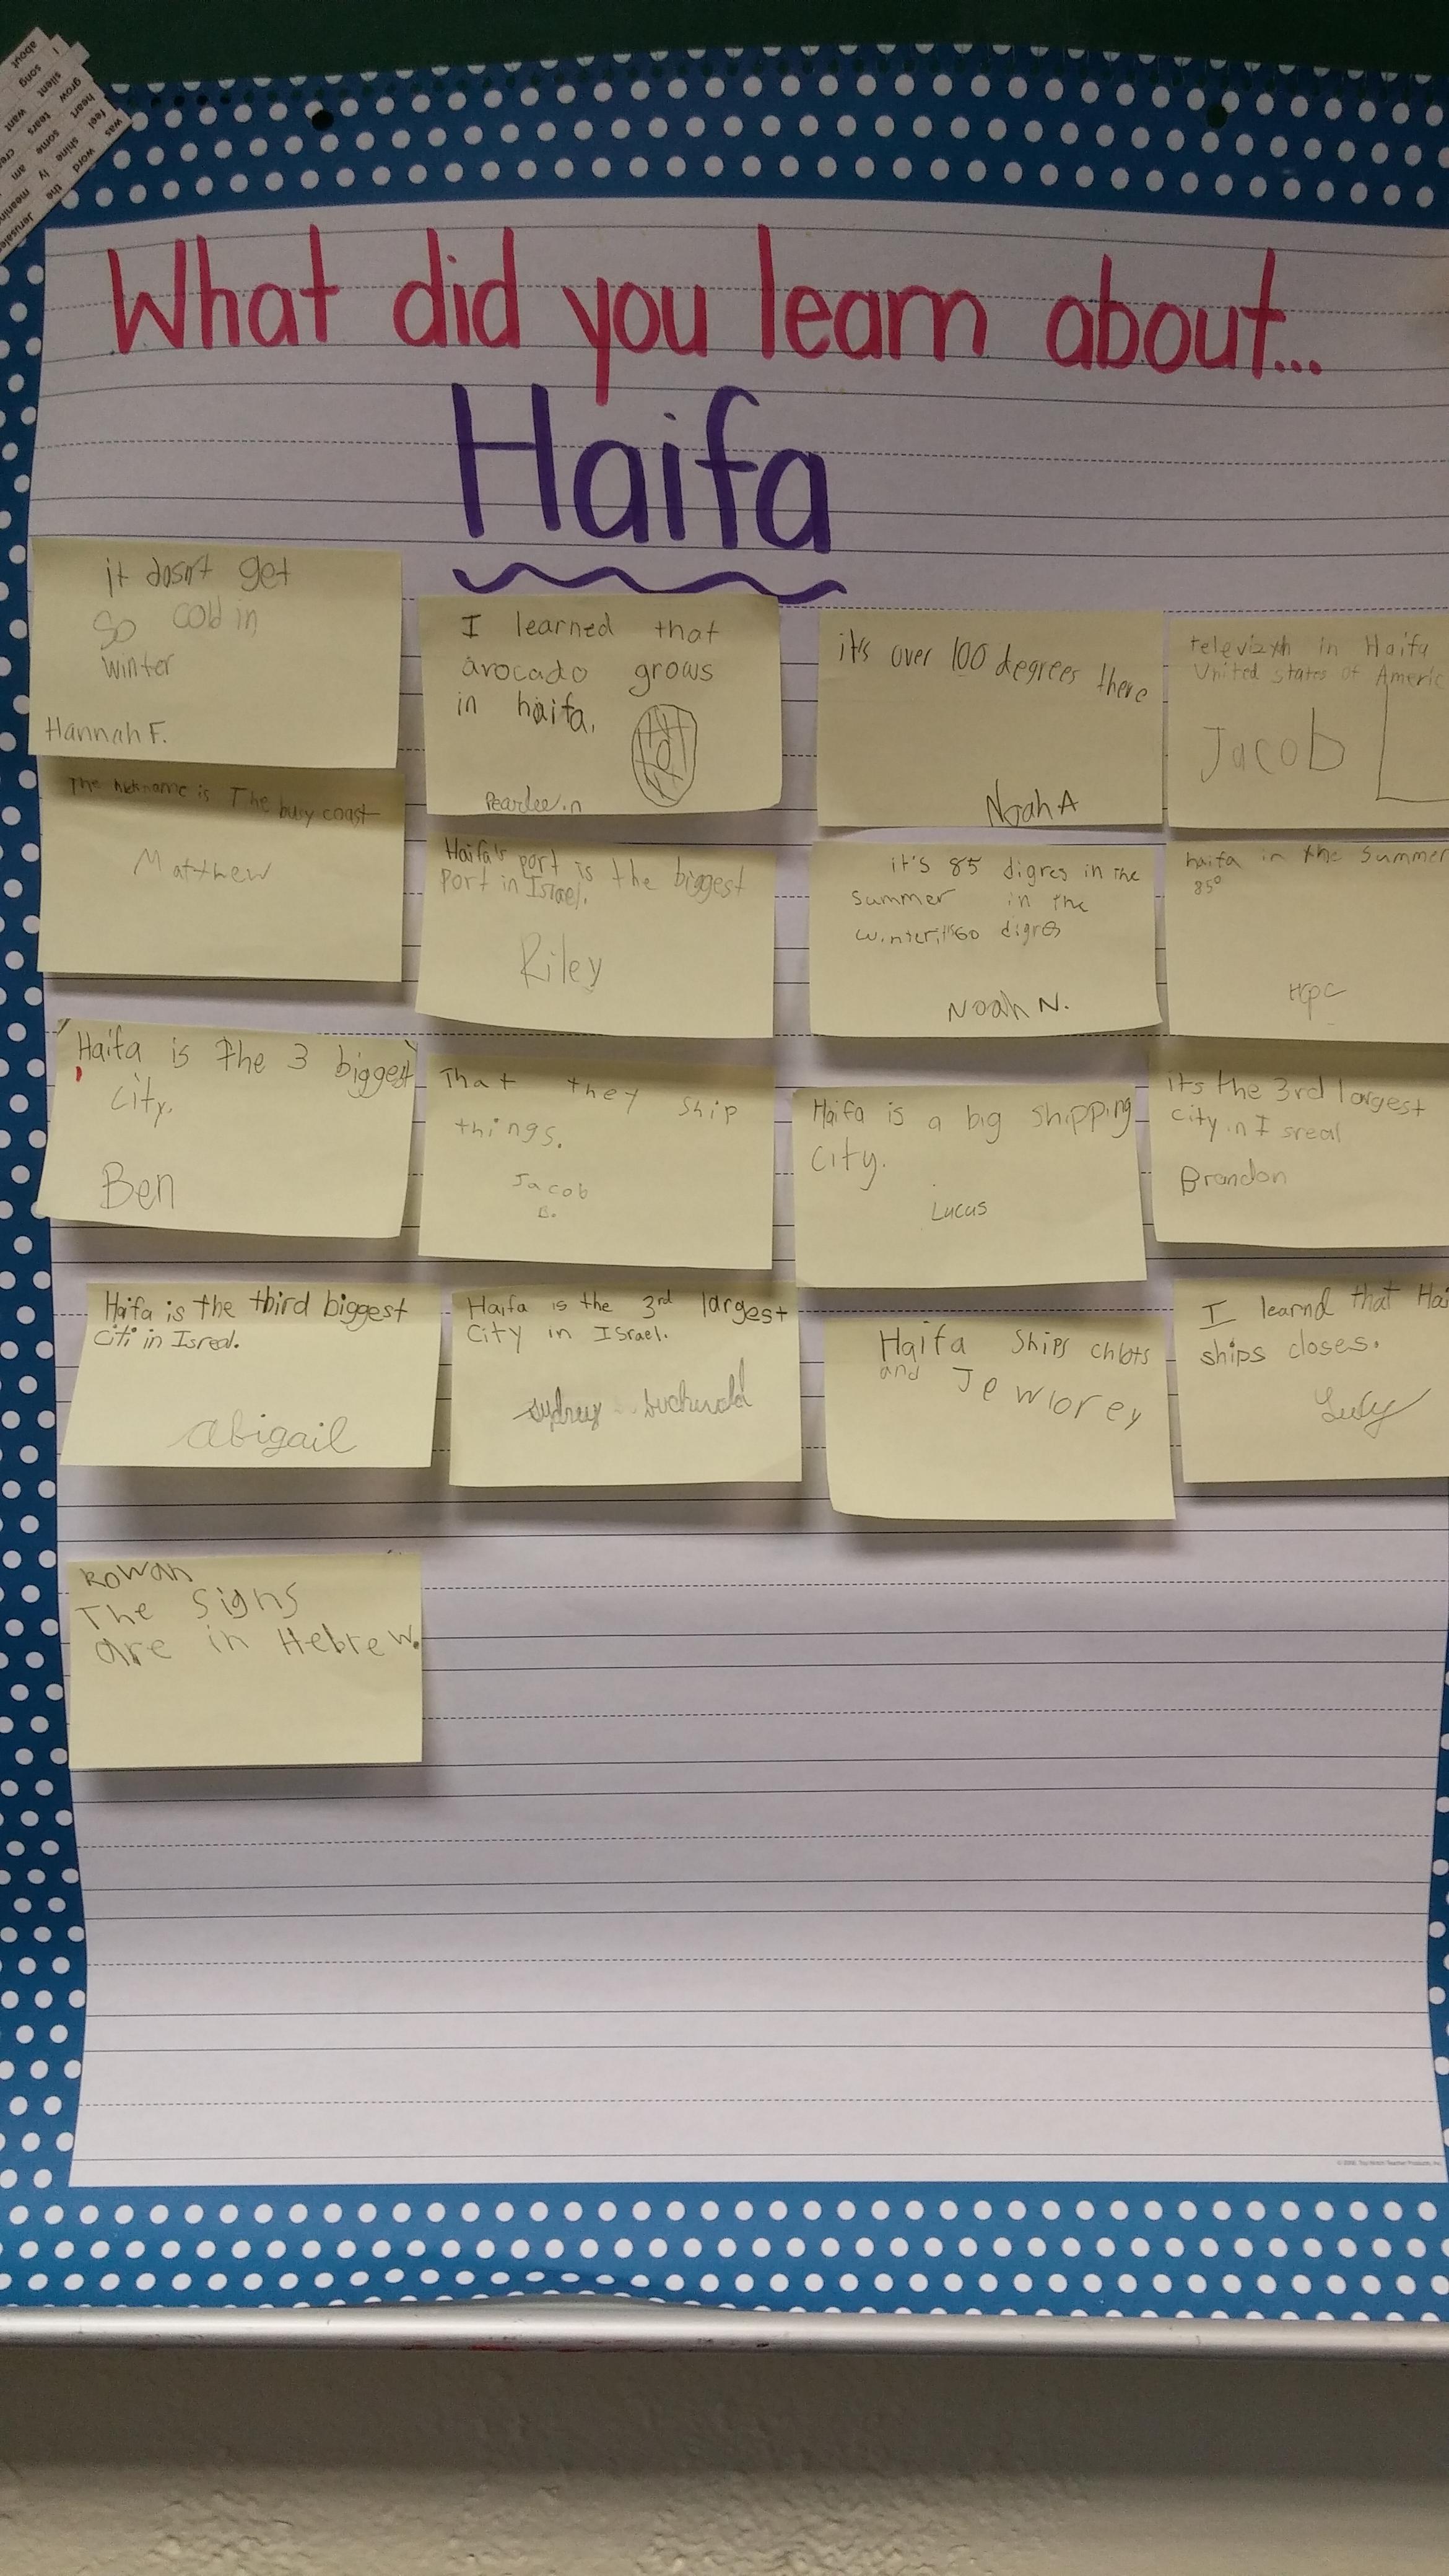 What did you learn about...
Haifa
it dosn't get
so cold in
winter
Hannah F.
I learned that
avocado grows
in haifa.
it's over 100 degrees there
Noah A
in Haifa
United states of Americ
Jacob
The nickname is The busy coast
Matthew
Haifa's port is the biggest
port in Israel.
Riley
it's 85 digres in the
summer in the
winter it's 60 digres
Noah N.
haifa in the summer
85°
Haifa is the 3 biggest
city.
Ben
That they ship
things.
Jacob
B.
Haifa is a big shipping
city.
Lucas
its the 3rd largest
city in Isreal
Brandon
Haifa is the third biggest
citi in Isreal.
abigail
Haifa is the 3rd largest
city in Israel.
sydney
Haifa ships
and Jewlorey
I learnd that Hai
ships closes.
Rowan
The signs
are in Hebrew.
about
song
want
I
silent
tears
grow
heart
some
am
feel
shine
ly
meanin
was
word
the
Jerusale